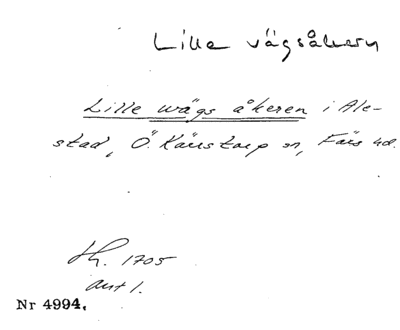 Lilla vägsåkern
Lille wägs åkeren i Ale-
stad, Ö. Kärstorp sn, Färs hd.
Lh. 1705
ant 1.
Nr 4994.